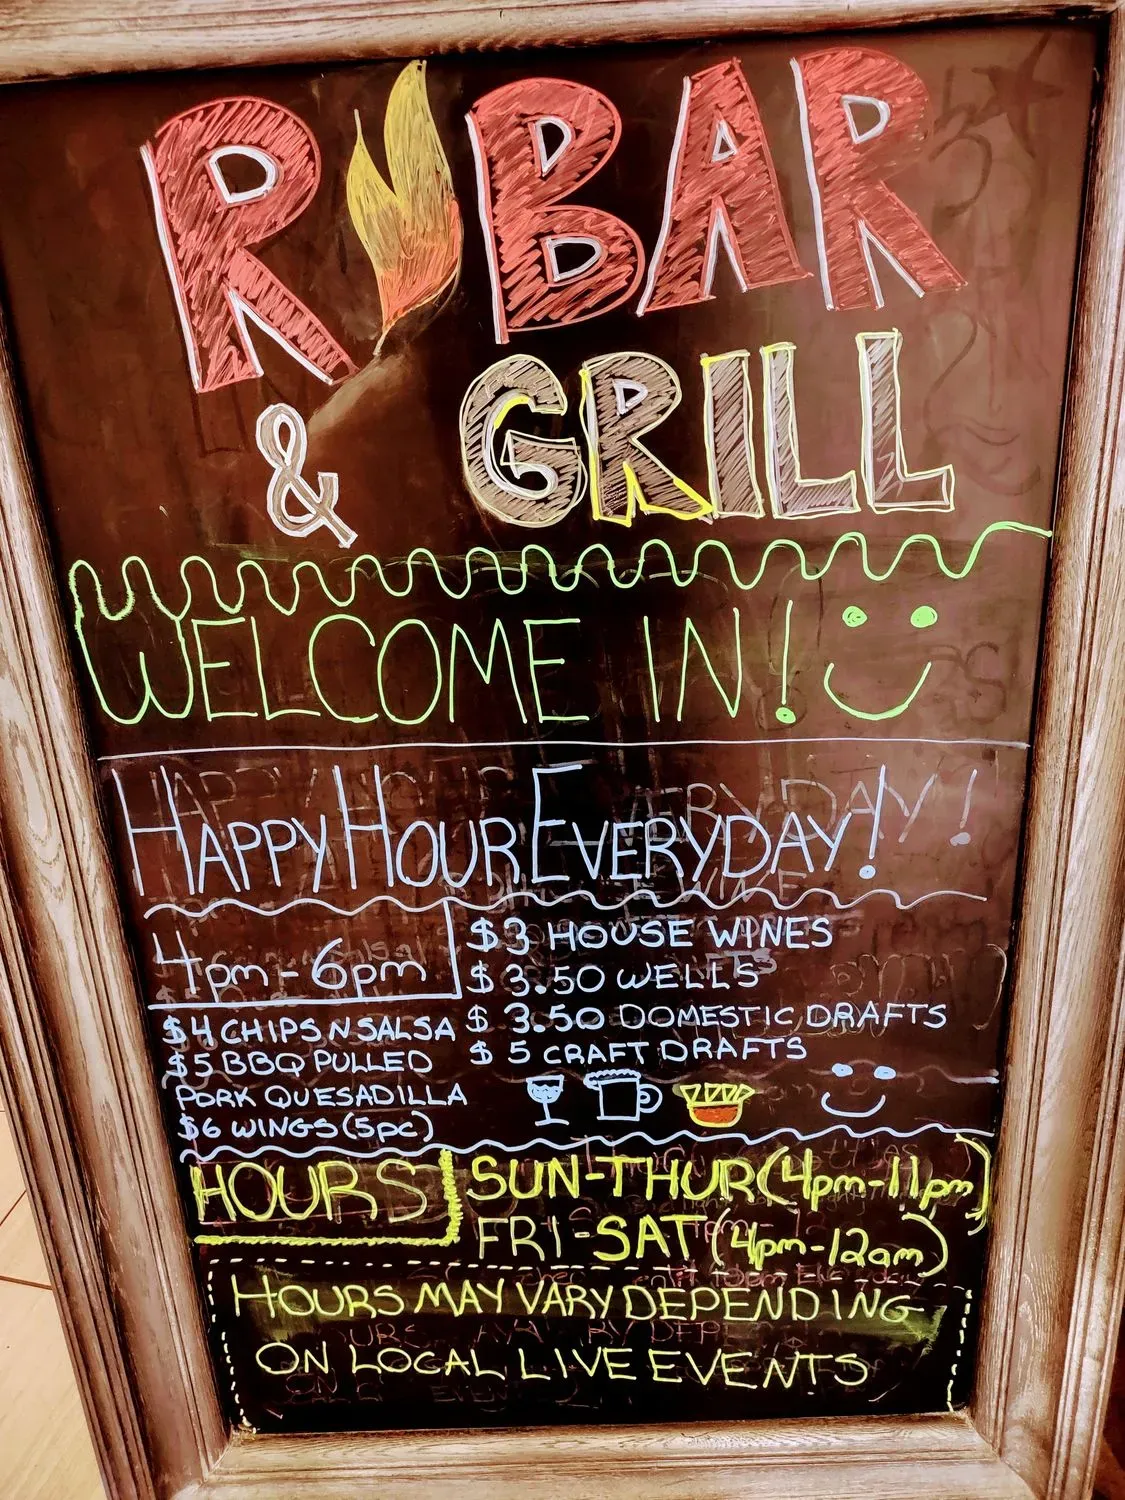 R BAR
& GRILL
WELCOME IN!
HAPPY HOUR EVERYDAY!
4pm-6pm
$4 CHIPS N SALSA
$5 BBQ PULLED
PORK QUESADILLA
$6 WINGS (5pc)
$3 HOUSE WINES
$3.50 WELLS
$3.50 DOMESTIC DRAFTS
$5 CRAFT DRAFTS
HOURS
SUN-THUR (4pm-11pm)
FRI-SAT (4pm-12am)
HOURS MAY VARY DEPENDING
ON LOCAL LIVE EVENTS